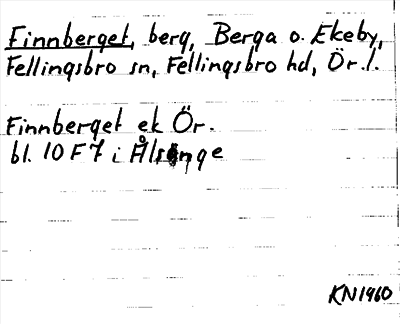 Finnberget, berg, Berga o. Ekeby,
Fellingsbro sn, Fellingsbro hd, Ör. l.
Finnberget ek Ör.
bl. 10 F 7 i Älsänge
KN1960